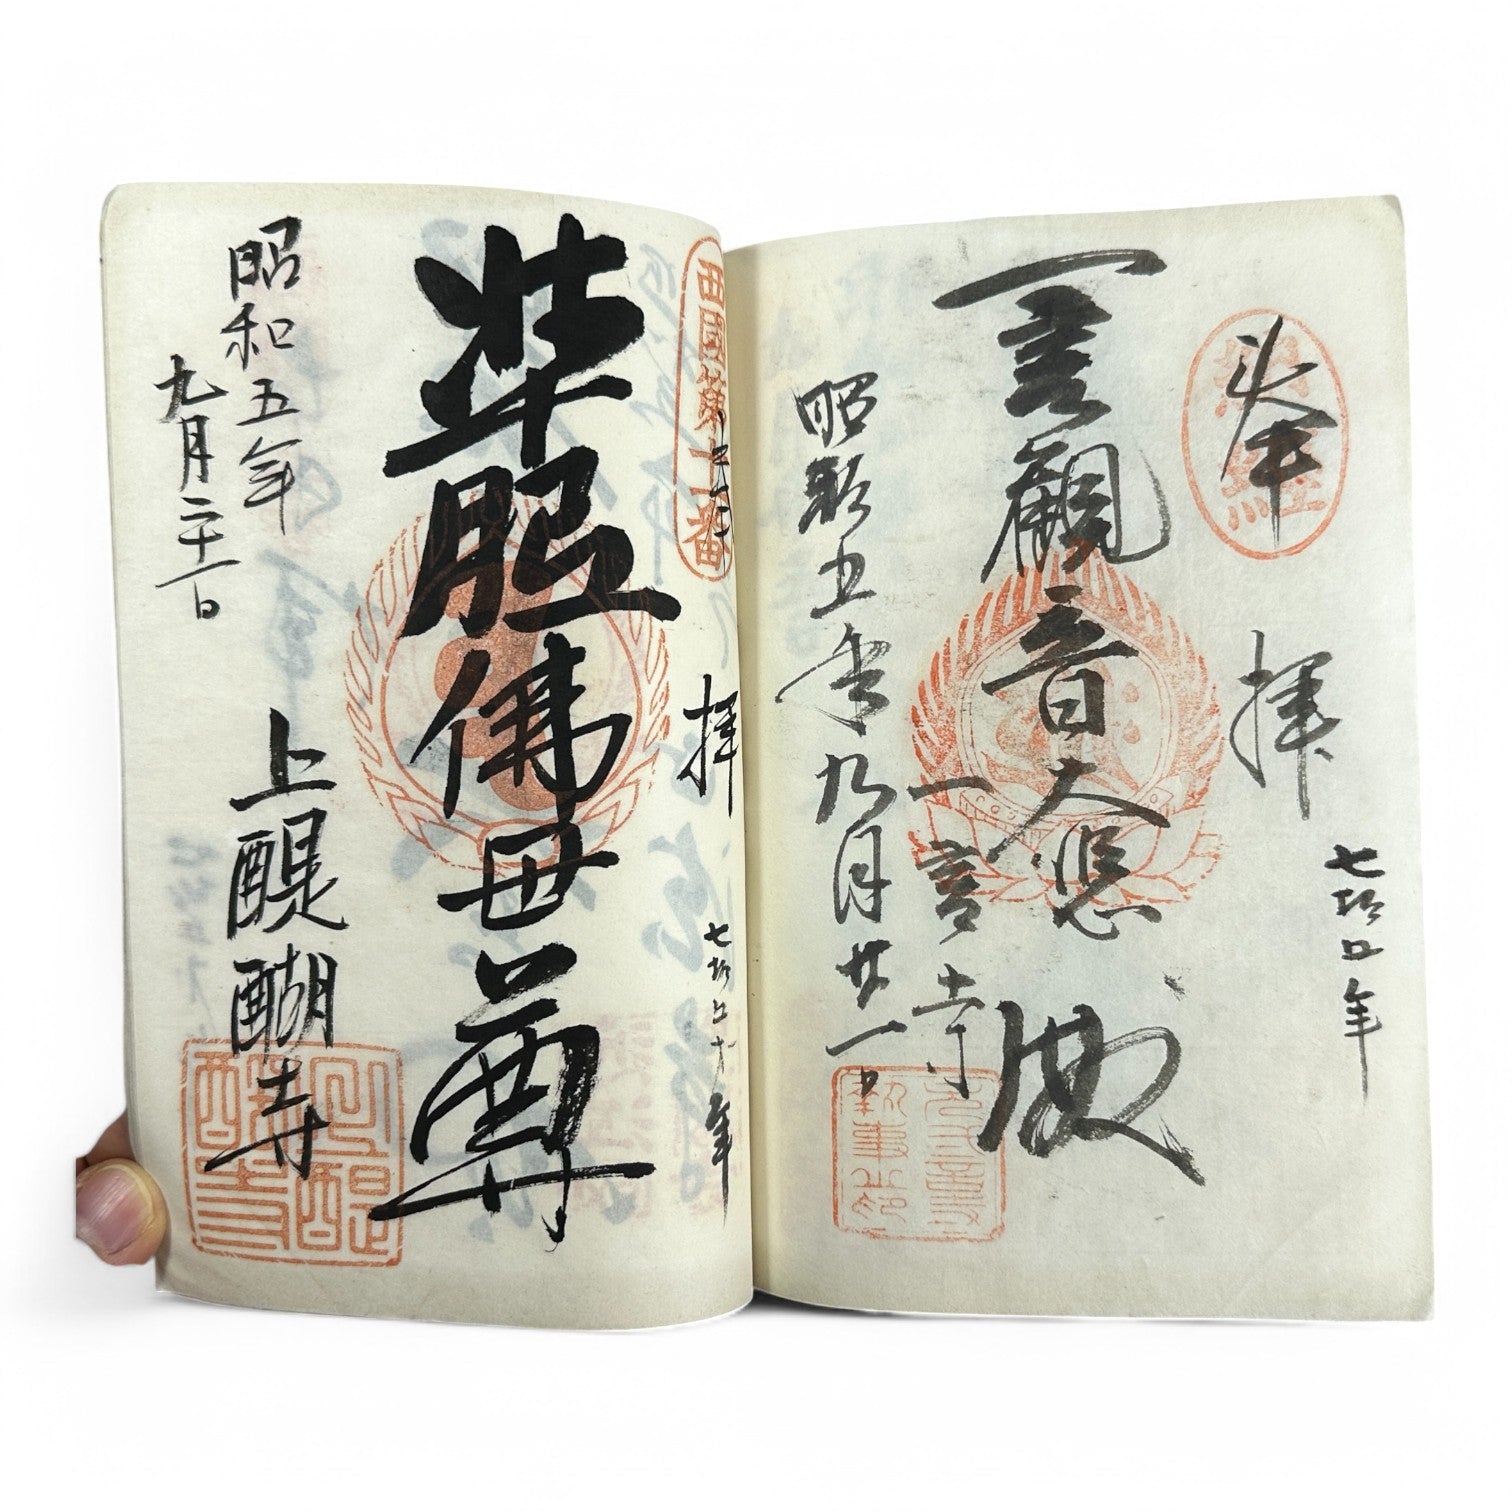 奉
拝
一言觀音大悲殿
一言寺
昭和五年九月廿一日
西國第十一番
拝
准胝佛母尊
上醍醐寺
昭和五年
九月二十一日